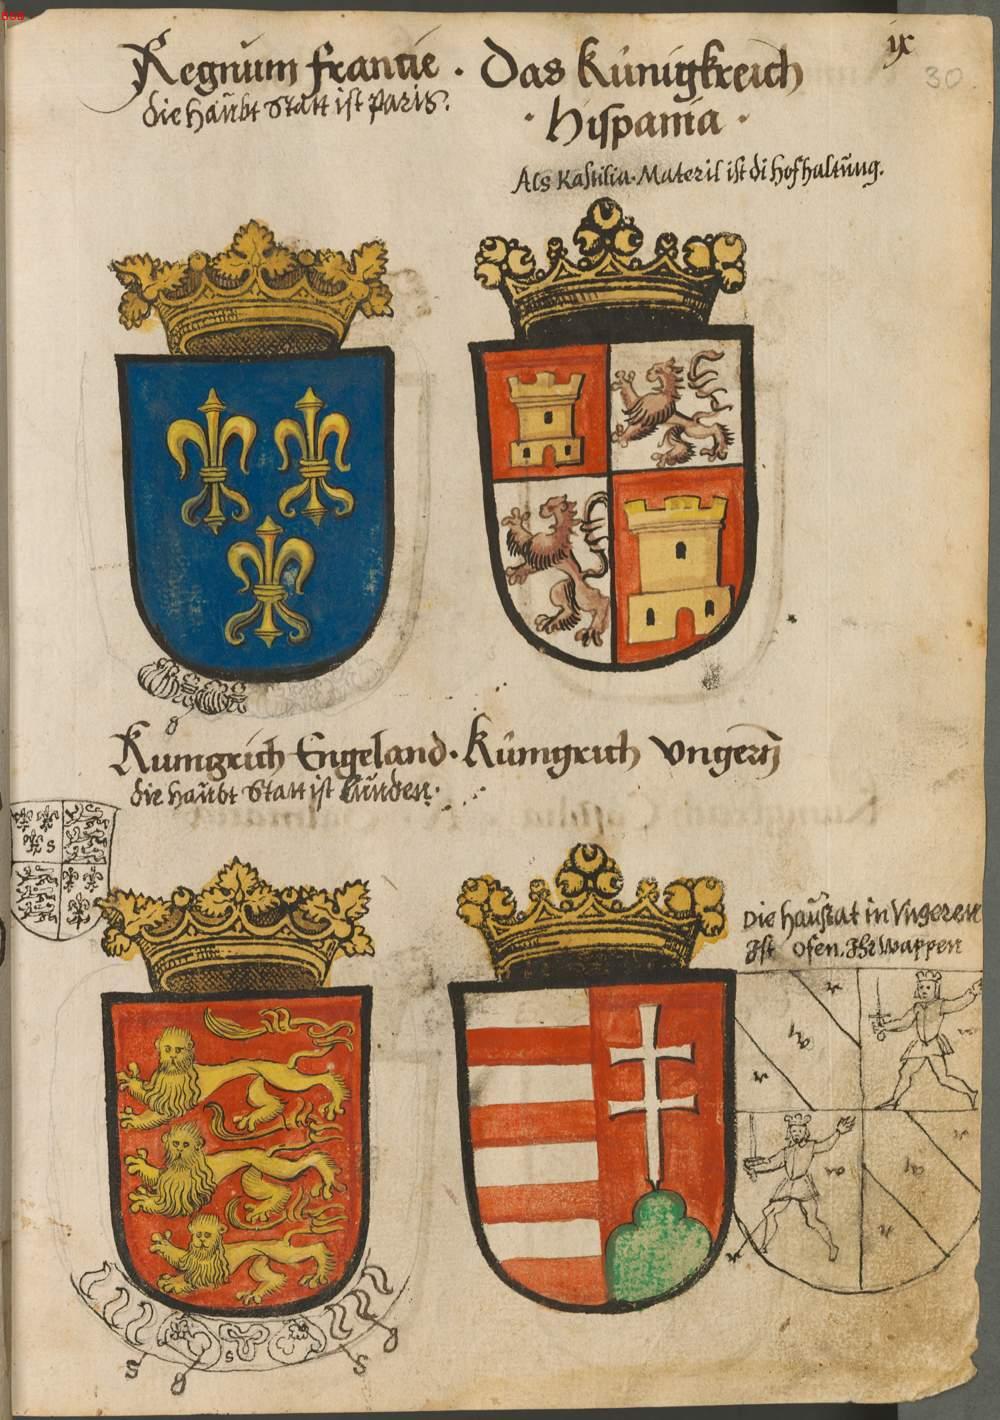 ix
30
Regnum francie .
die haubt Statt ist paris.
Das Künigkreich
· Hispania ·
Als Kastilia. Materil ist di hofhaltung.
Kunigrich Engeland .
die haubt Statt ist Lunden.
Künigrich Vngern
Die haustat in Vngeren
Ist Ofen. Ihr Wappen